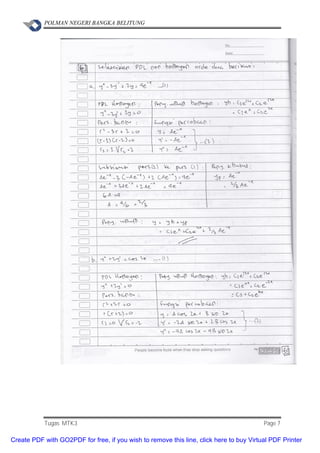 POLMAN NEGERI BANGKA BELITUNG
No.
Date
Selesaikan PDL non homogen orde dua berikut:
a. y" - 3y' + 2y = 4e⁻ˣ ...(1)
PDL Homogen:
y" - 3y' + 2y = 0
Pers. bantu:
r² - 3r + 2 = 0
(r-1)(r-2) = 0
Peny. umum homogen: yh = C₁eʳ¹ˣ + C₂eʳ²ˣ
= C₁eˣ + C₂e²ˣ
Fungsi percobaan:
y = Ae⁻ˣ
y' = -Ae⁻ˣ
y" = Ae⁻ˣ
...(2)
Substitusi pers (2) ke pers (1)
Ae⁻ˣ - 3(-Ae⁻ˣ) + 2(Ae⁻ˣ) = 4e⁻ˣ
Ae⁻ˣ + 3Ae⁻ˣ + 2Ae⁻ˣ = 4e⁻ˣ
6A = 4
A = 4/6 = 2/3
Peny. khusus:
Peny. umum: y = yh + yp
b. y" + 2y' = cos 2x ...(1)
PDL Homogen:
y" + 2y' = 0
Pers. bantu:
r² + 2r = 0
r(r+2) = 0
r₁ = 0 V r₂ = -2
Peny. umum homogen: yh = C₁eʳ¹ˣ + C₂eʳ²ˣ
Fungsi percobaan:
y = A cos 2x + B sin 2x
y' = -2A sin 2x + 2B cos 2x
y" = -4A cos 2x - 4B sin 2x
People become faste when they stop asking questions
Tugas MTK3 Page 7
Create PDF with GO2PDF for free, if you wish to remove this line, click here to buy Virtual PDF Printer